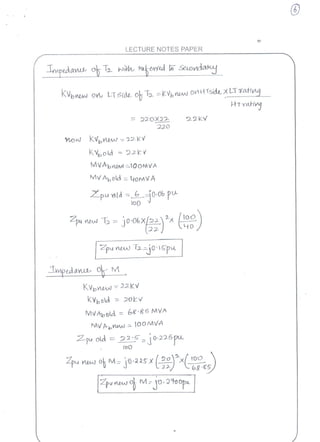 6
LECTURE NOTES PAPER
Impedance of T2 with referred to Secondary
KVbnew on LT side of T2 = KVbnew on HT side x LT rating
HT rating
= 220x22 22KV
220
now KVbnew = 22KV
KVbold = 22KV
MVAbnew = 100MVA
MVAbold = 40MVA
Zpu old = 6 = j0.06 pu
100
Zpu new T2 = j0.06x(22/22)²x(100/40)
Zpu new T2 = j0.15pu
Impedance of M
KVbnew = 22KV
KVbold = 20KV
MVAbold = 68.85 MVA
MVAbnew = 100MVA
Zpu old = 22.5 = j0.225pu
100
Zpu new of M = j0.225 x (20/22)² x (100/68.85)
Zpu new of M = j0.2700pu